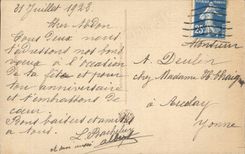 31 Juillet 1923.
Cher Abdon
Tous deux nous
t'adressons nos bons
vœux à l'occasion
de ta fête et pour
ton anniversaire
et t'embrassons de
cœur.
Bons baisers et amitiés
à tous.
et ami aussi
Monsieur
A Deulin
chez Madame
à Arcelay
Yonne